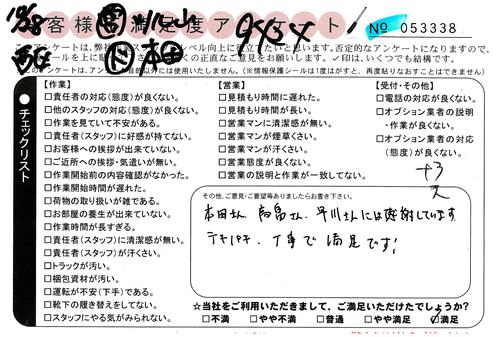 10/28
客様満足度アンケート
9434
№ 053338
本田
このアンケートは、弊社
レベル向上に役立たいと思います。否定的なアンケートになりますので、
シールを上に貼
くの正直なご意見をお願いします。✓印は、いくつでも結構です。
目的以外には使用いたしません。(※情報保護シールは1度がすと、再度貼りなおすことはできません)
チェックリスト
【作業】
□責任者の対応(態度)が良くない。
□他のスタッフの対応(態度)が良くない。
□作業を見ていて不安がある。
□責任者(スタッフ)に好感が持てない。
□お客様への挨拶が出来ていない。
□ご近所への挨拶・気遣いが無い。
□作業開始前の内容確認がなかった。
□作業開始時間が遅れた。
□荷物の取り扱いが雑である。
□お部屋の養生が出来ていない。
□作業時間が長すぎる。
□責任者(スタッフ)に清潔感が無い。
□責任者(スタッフ)が汗くさい。
□トラックが汚い。
□梱包資材が汚い。
□運転が不安(下手)である。
□靴下の履き替えをしてない。
□スタッフにやる気がみられない。
【営業】
□見積もり時間に遅れた。
□見積もり時間が長い。
□営業マンに清潔感が無い。
□営業マンが煙草くさい。
□営業マンが汗くさい。
□営業態度が良くない。
□営業の説明と作業が一致してない。
【受付・その他】
□電話の対応が良くない。
□オプション業者の説明
・作業が良くない。
□オプション業者の対応
(態度)が良くない。
その他、ご意見・ご要望等ありましたらお書き下さい。
本田さん、高畠さん、早川さんには感謝しています
テキパキ、丁寧で満足です!
☆当社をご利用いただきまして、ご満足いただけたでしょうか?
□不満 □やや不満 □普通 □やや満足 ☑満足